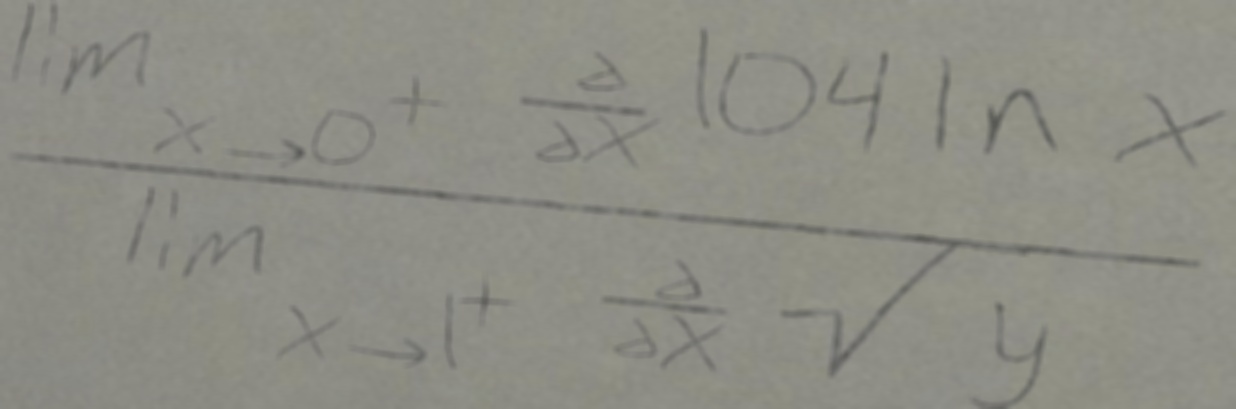 lim x→0⁺ ∂/∂x 104 ln x
lim x→1⁺ ∂/∂x √y